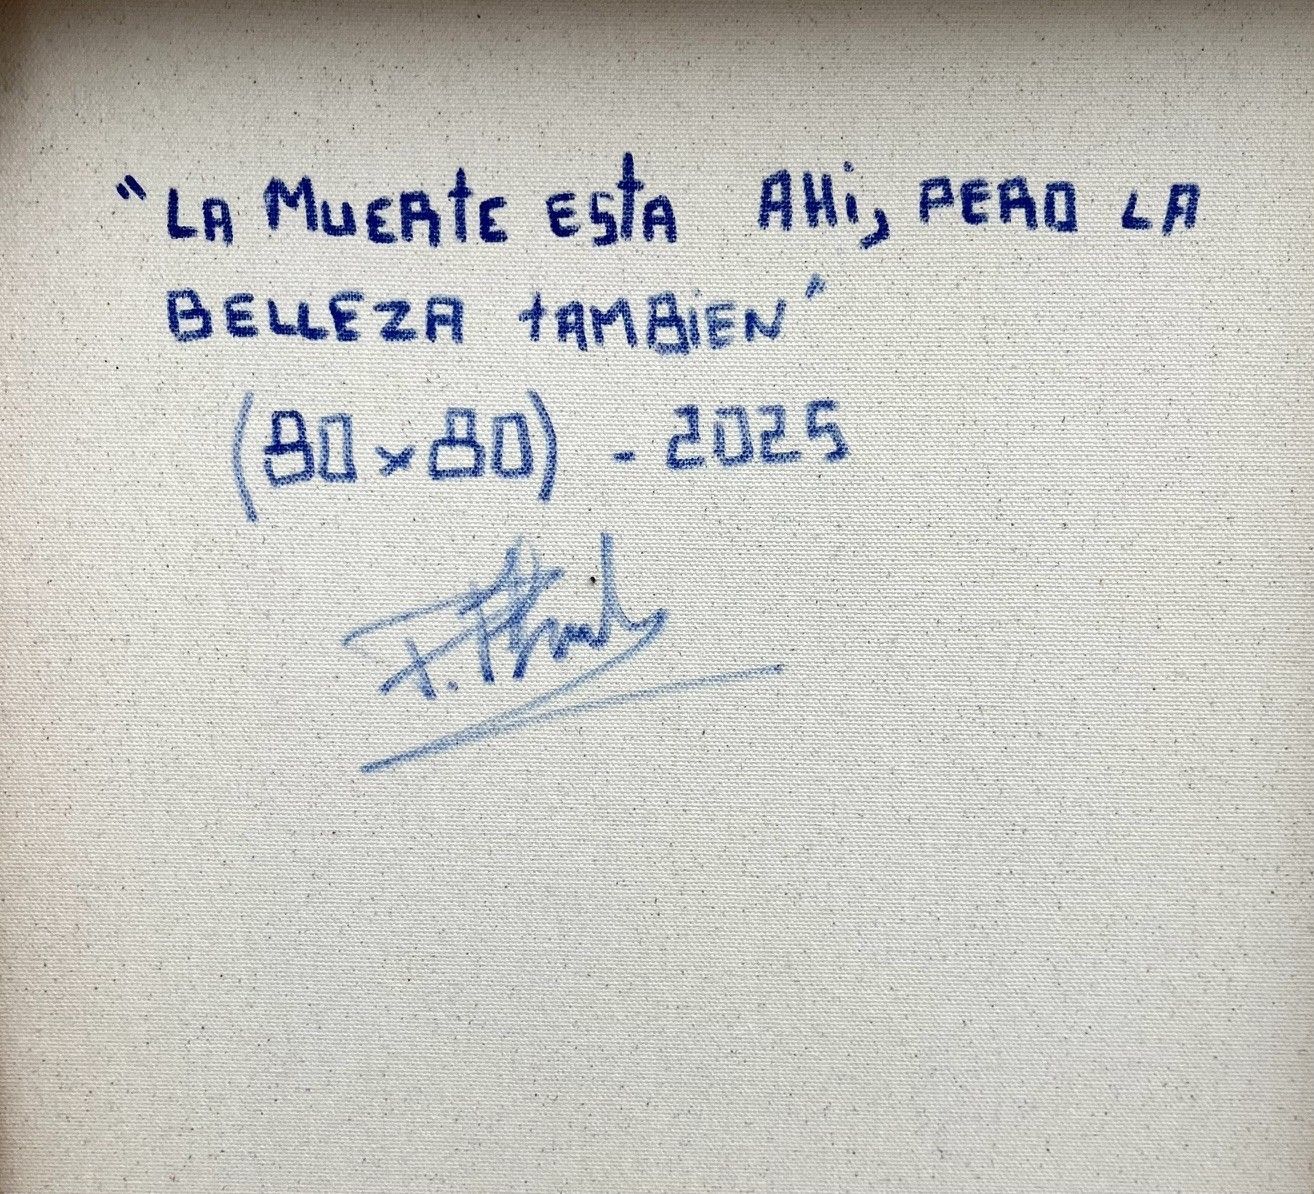 "LA MUERtE EStA AHi, PERO LA
BELLEZA tAMBiEN"
(80x80) - 2025